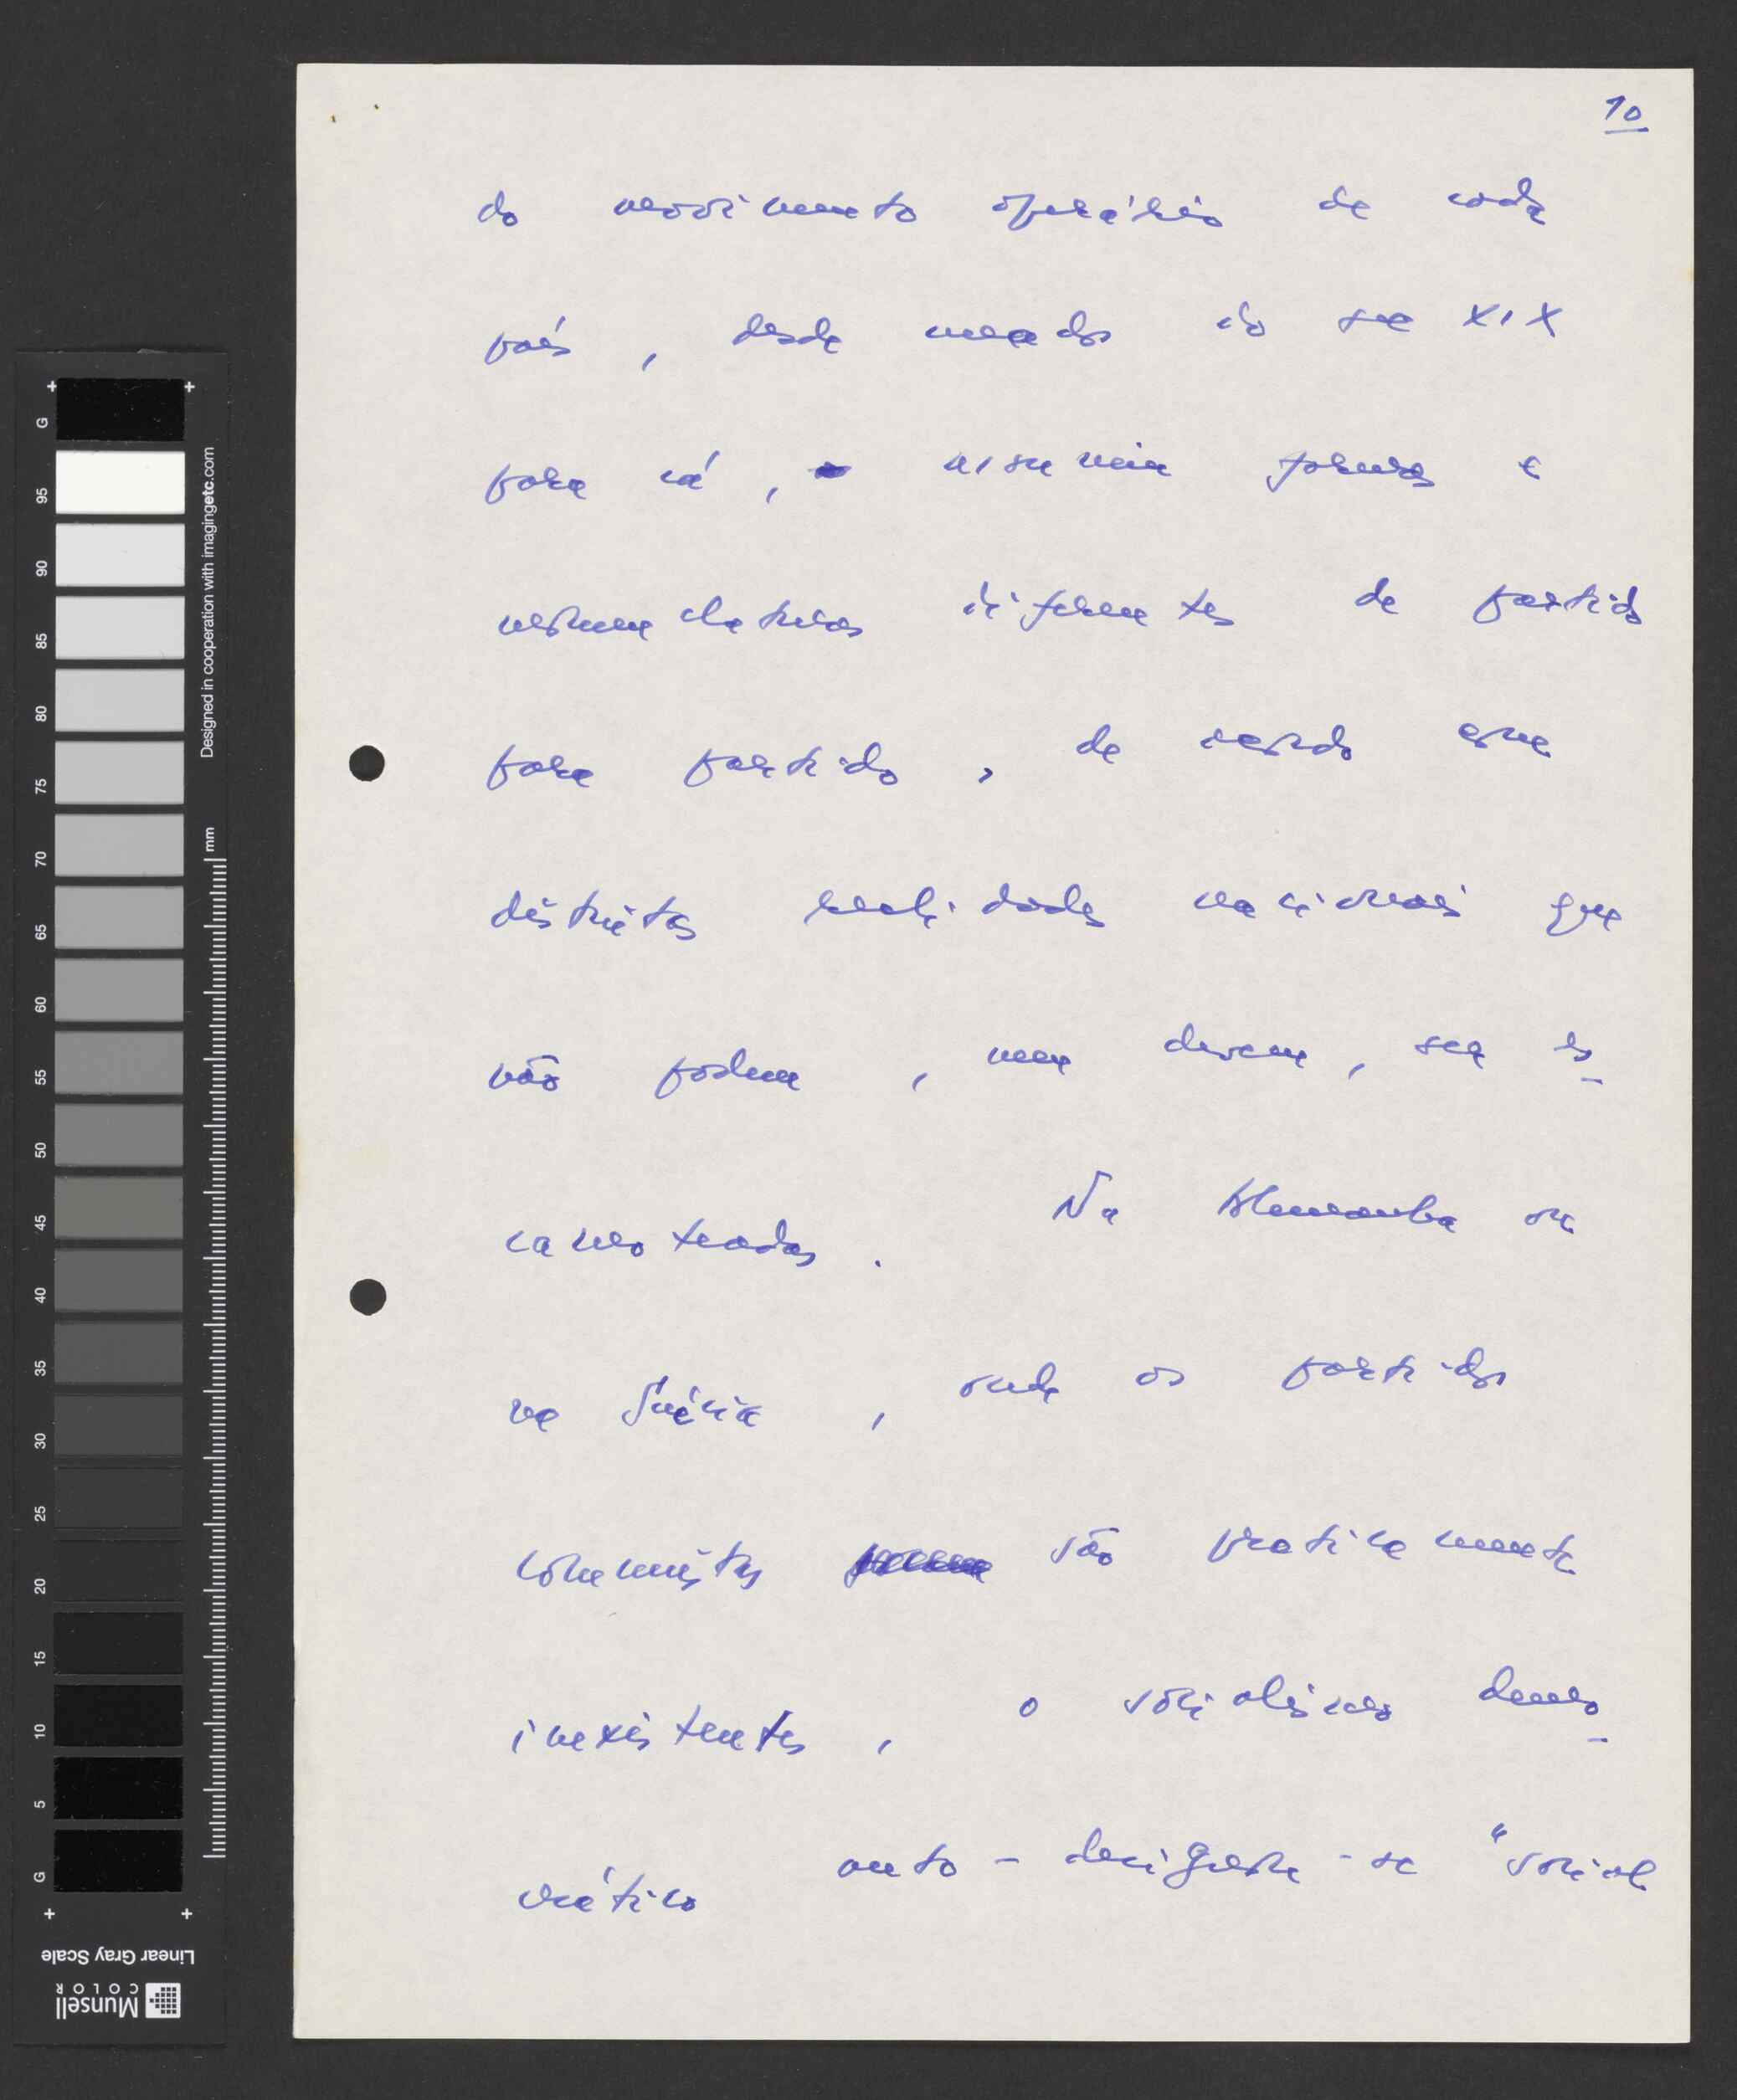 10
do movimento operário de cada
país, desde meados do sec XIX
para cá, assumiu formas e
nomenclaturas diferentes de partido
para partido, de acordo com
distintas realidades nacionais que
não podem, nem devem, ser es-
camoteadas. Na Alemanha ou
na Suécia, onde os partidos
comunistas são praticamente
inexistentes, o socialismo demo-
crático auto-designa-se "social
G
95
90
85
80
75
70
65
60
55
50
45
40
35
30
25
20
15
10
5
G
Designed in cooperation with imagingetc.com
mm
Linear Gray Scale
Munsell
COLOR